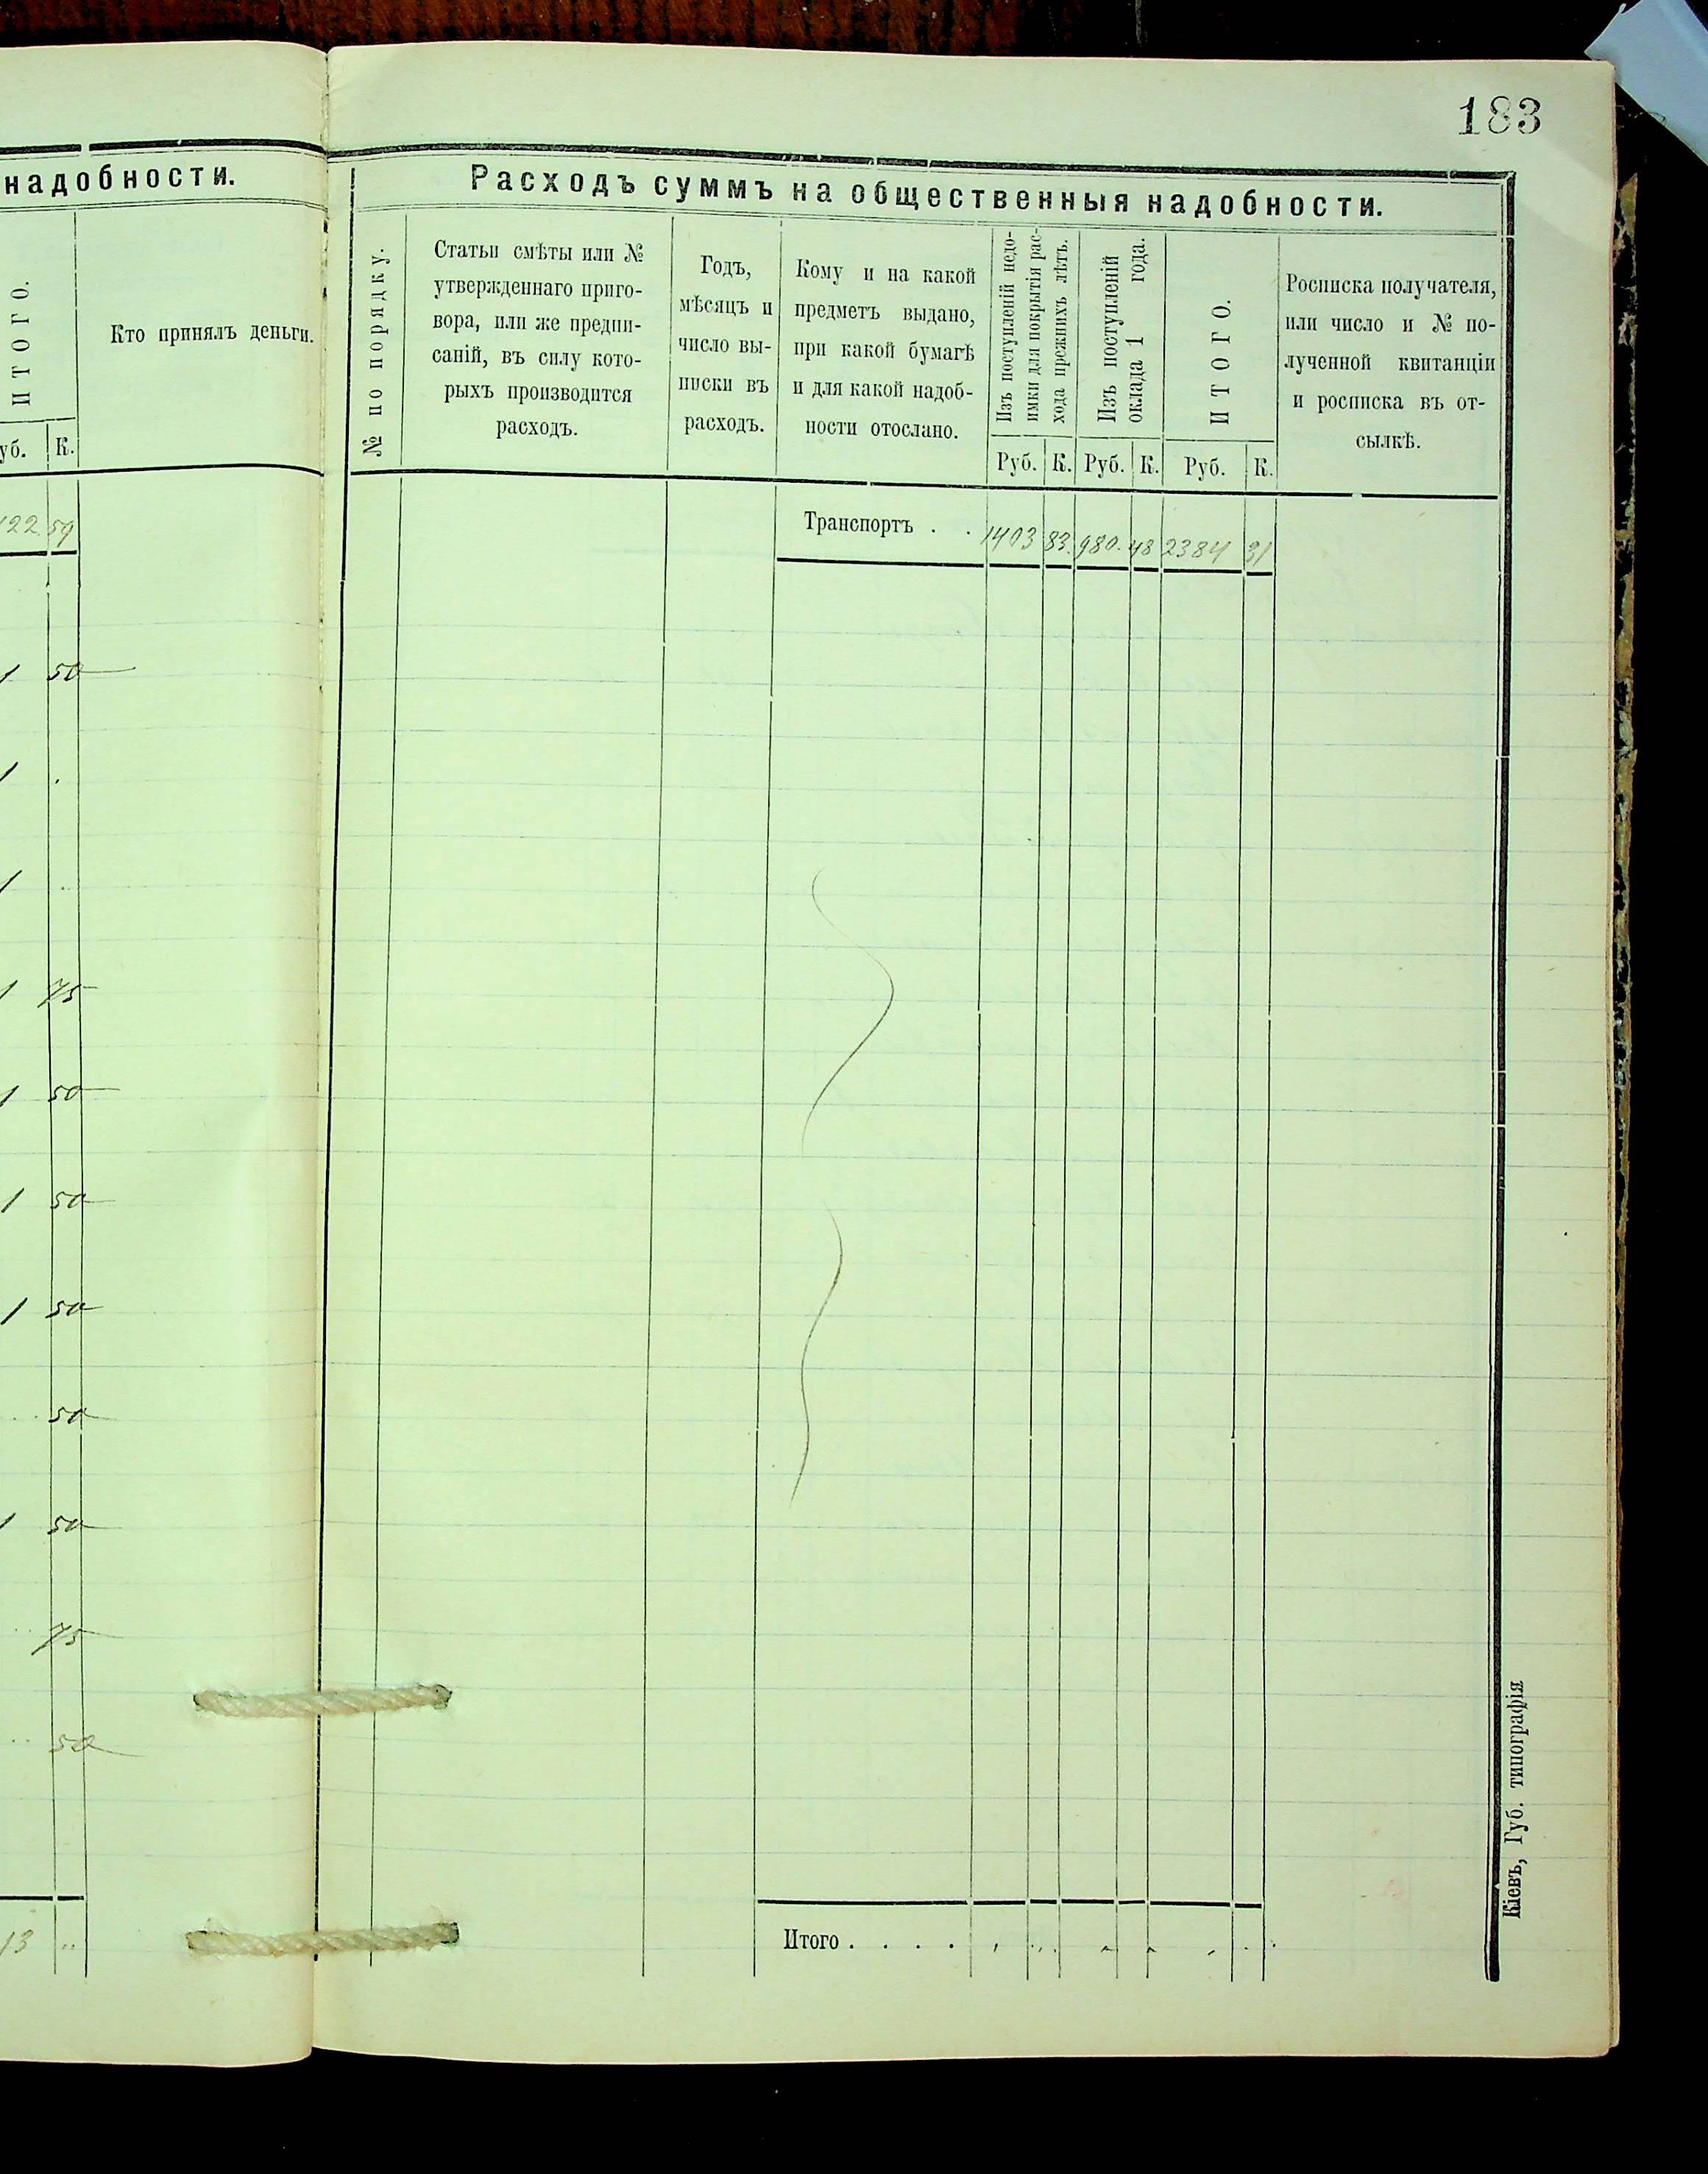 183
надобности.
ИТОГО.
Кто принялъ деньги.
уб. К.
122 59
1 50
1 .
1 ..
1 75
1 50
1 50
1 50
.. 50
1 50
.. 75
.. 50
13 ..
Расходъ суммъ на общественныя надобности.
№ по порядку.
Статьи смѣты или №
утвержденнаго приго-
вора, или же предпи-
саній, въ силу кото-
рыхъ производится
расходъ.
Годъ,
мѣсяцъ и
число вы-
писки въ
расходъ.
Кому и на какой
предметъ выдано,
при какой бумагѣ
и для какой надоб-
ности отослано.
Изъ поступленій недо-
имки для покрытія рас-
хода прежнихъ лѣтъ.
Изъ поступленій
оклада 1 года.
ИТОГО.
Росписка получателя,
или число и № по-
лученной квитанціи
и росписка въ от-
сылкѣ.
Руб. К. Руб. К. Руб. К.
Транспортъ . . 1403 83. 980. 48 2384 31
Итого . . . .
Кіевъ, Губ. типографія